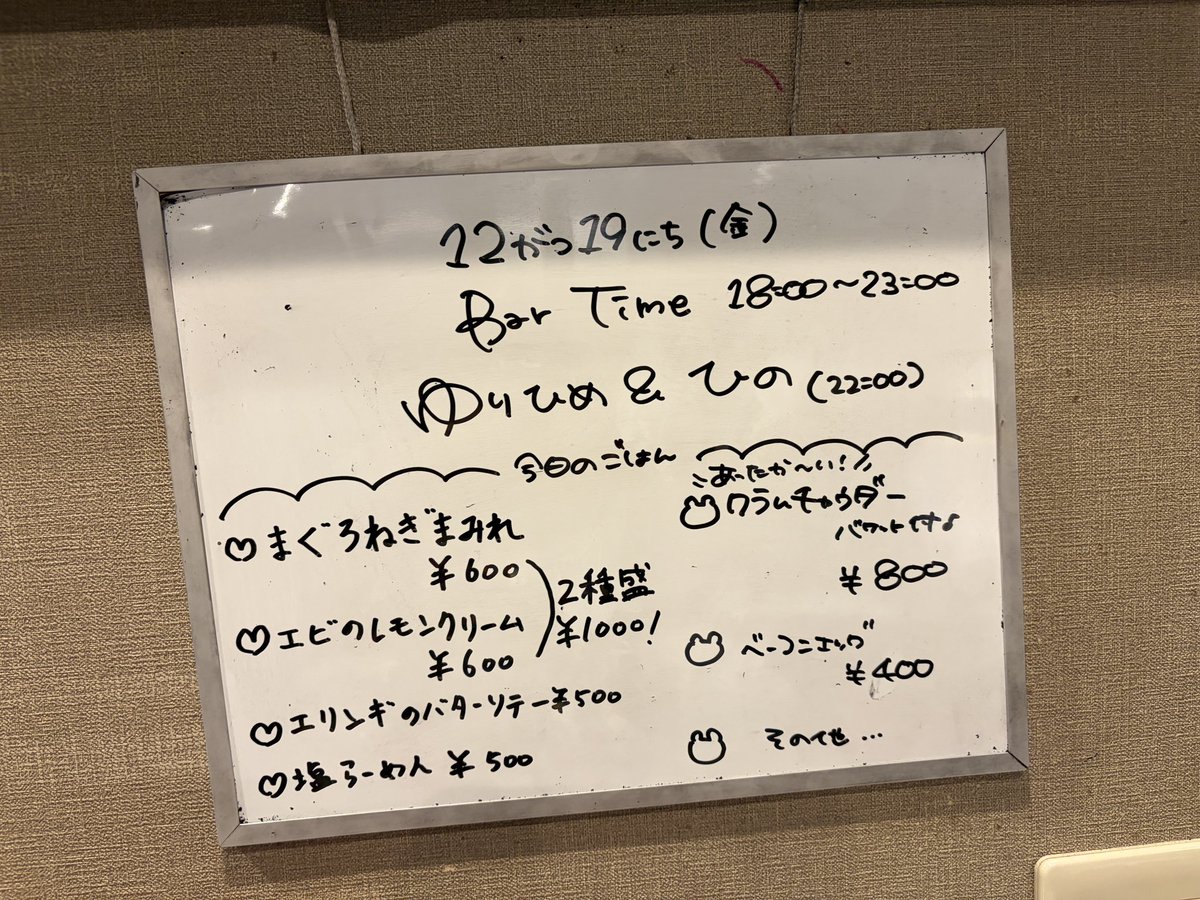 12がつ19にち(金)
Bar Time 18:00〜23:00
ゆりひめ & ひの(22:00)
今日のごはん
まぐろねぎまみれ
¥600
エビのレモンクリーム
¥600
2種盛
¥1000!
エリンギのバターソテー ¥500
塩らーめん ¥500
あったか〜い!
クラムチャウダー
バケット付き♪
¥800
ベーコンエッグ
¥400
その他…